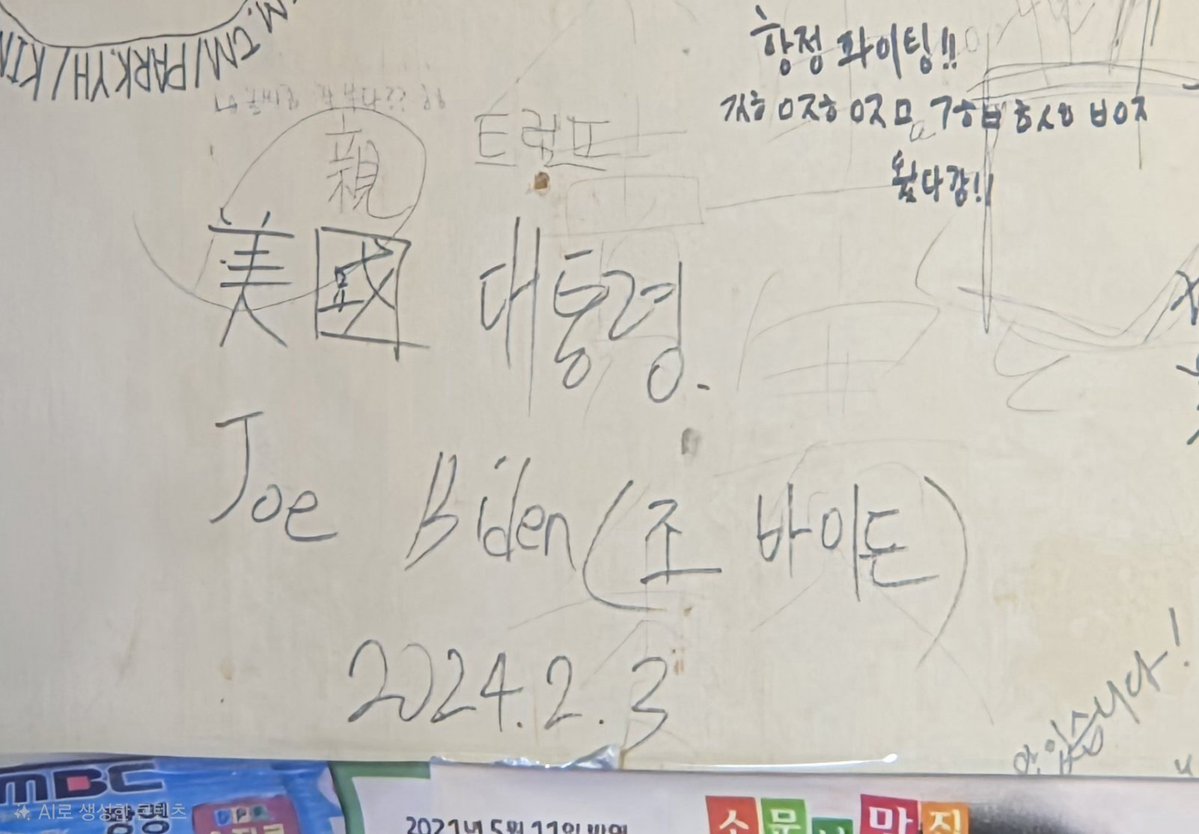 CM/PARKYH/KIM
항정 화이팅!!
ㄱㅈㅎ ㅇㅈㅎ ㅇㅈㅁ ㄱㅎㅂ ㅎㅅㅎ ㅂㅇㅈ
왔다감!!
親 트럼프
美國 대통령.
Joe Biden (조 바이든)
2024.2.3
MBC
AI로 생성한 콘텐츠
2021년 5월 11일 방영
소문 맛집